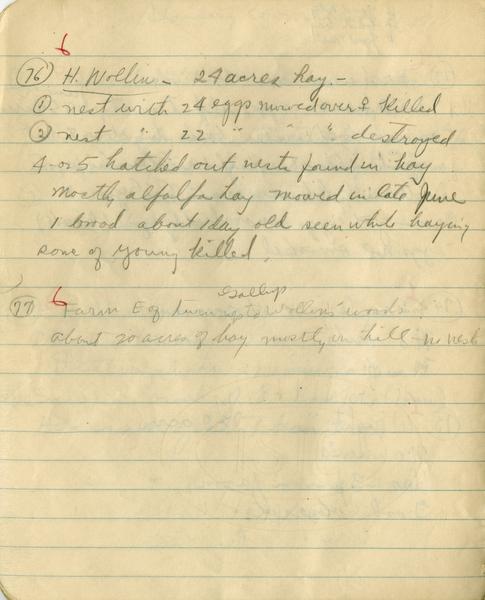 6
76 H. Wollin - 24 acres hay.-
① nest with 24 eggs mowed over ♀ killed
② nest " 22 " " " destroyed
4 or 5 hatched out nests found in hay
mostly alfalfa hay mowed in late June
1 brood about 1 day old seen while haying
some of young killed.
Gallup
6
77 Farm E of to Wollins woods.
about 20 acres of hay mostly on hill - no nests